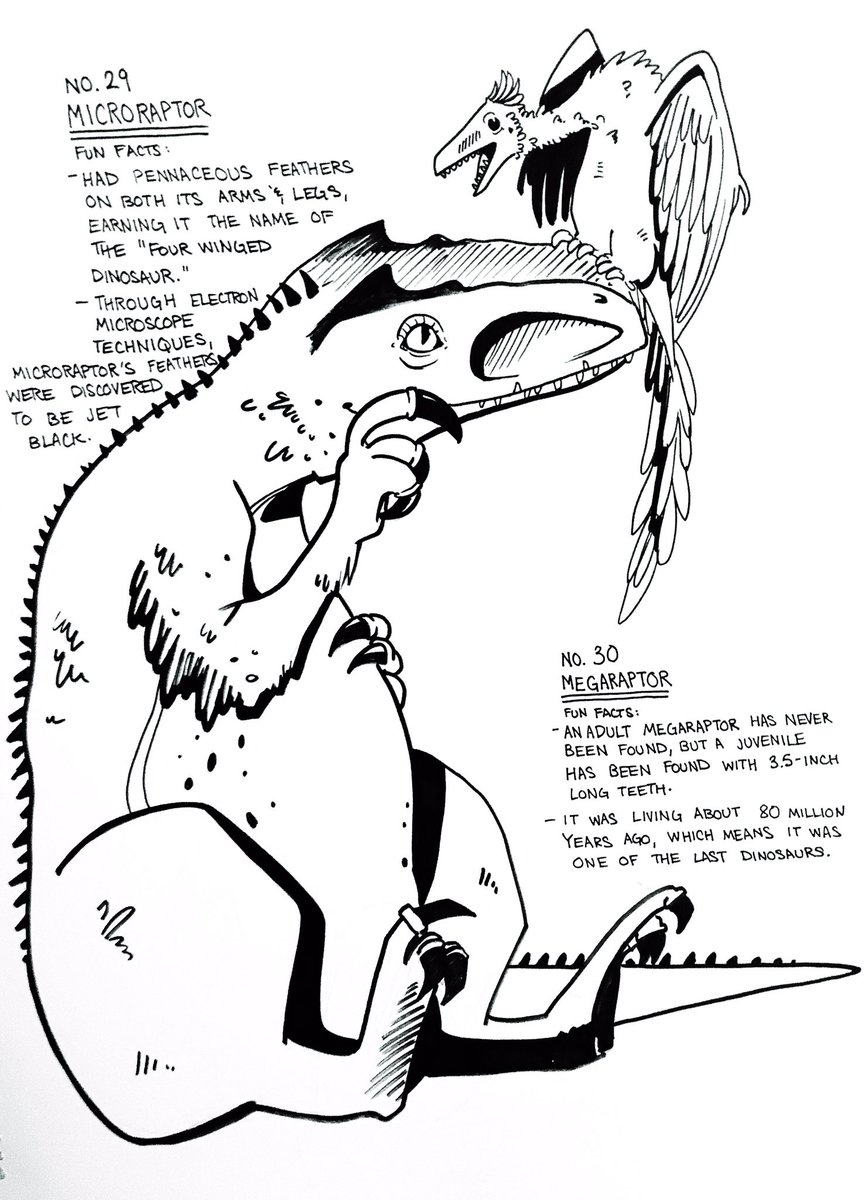 NO. 29
MICRORAPTOR
FUN FACTS:
- HAD PENNACEOUS FEATHERS
ON BOTH ITS ARMS & LEGS,
EARNING IT THE NAME OF
THE "FOUR WINGED
DINOSAUR."
- THROUGH ELECTRON
MICROSCOPE
TECHNIQUES,
MICRORAPTOR'S FEATHERS
WERE DISCOVERED
TO BE JET
BLACK.
NO. 30
MEGARAPTOR
FUN FACTS:
- AN ADULT MEGARAPTOR HAS NEVER
BEEN FOUND, BUT A JUVENILE
HAS BEEN FOUND WITH 3.5-INCH
LONG TEETH.
- IT WAS LIVING ABOUT 80 MILLION
YEARS AGO, WHICH MEANS IT WAS
ONE OF THE LAST DINOSAURS.